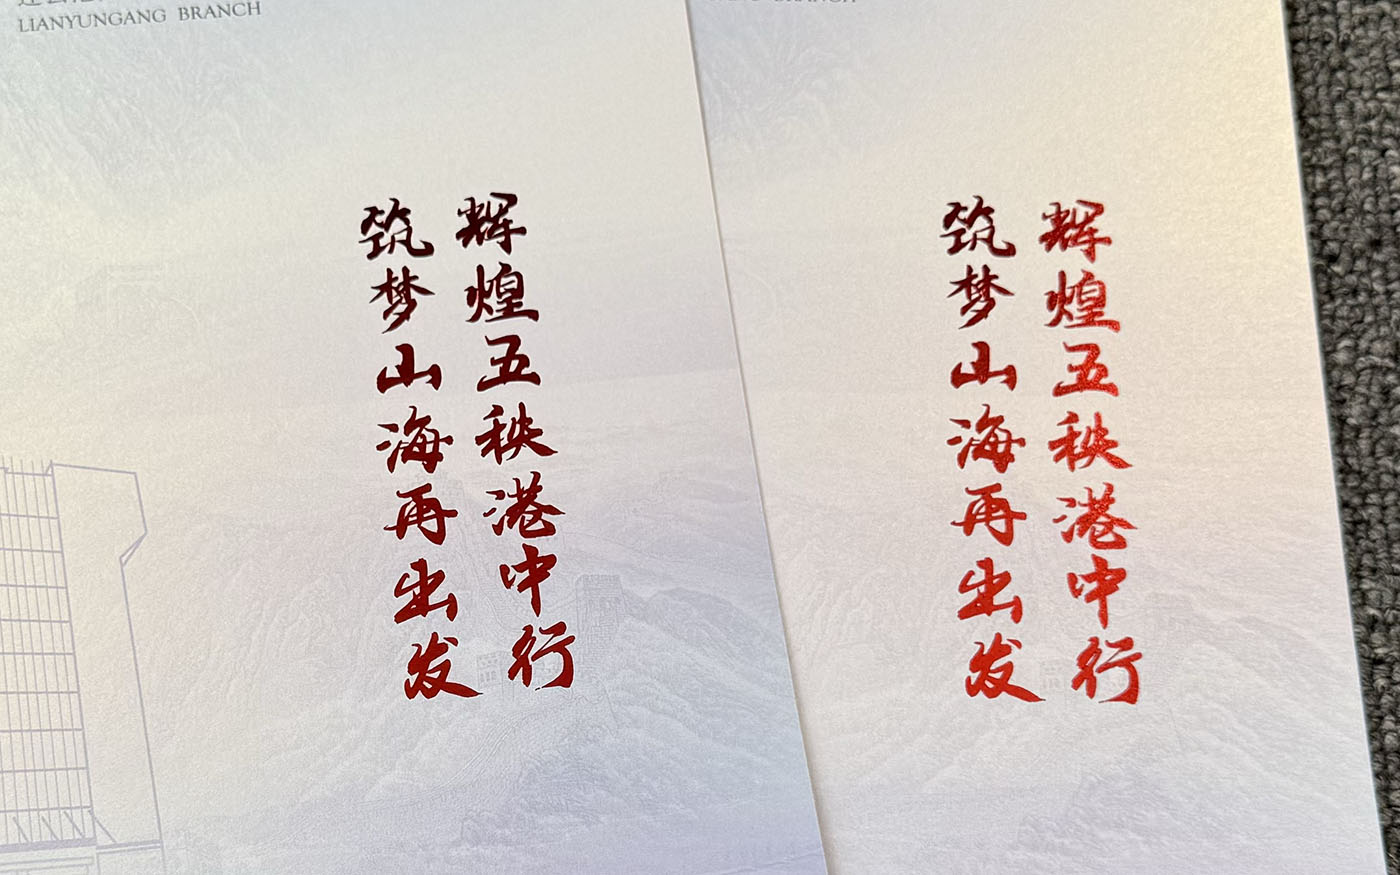 LIANYUNGANG BRANCH
辉煌五秩港中行
筑梦山海再出发
BRANCH
辉煌五秩港中行
筑梦山海再出发